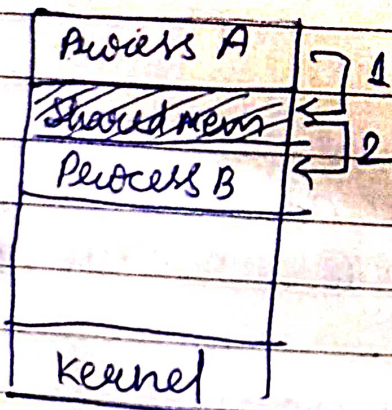 Process A
1
Shared Mem
2
Process B
Kernel